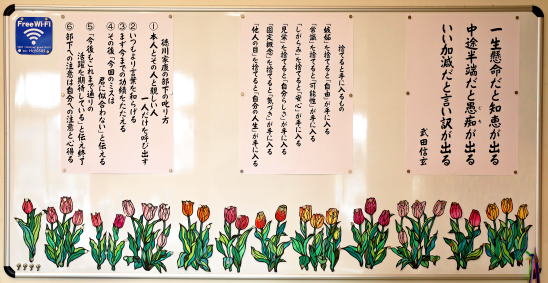 一生懸命だと知恵が出る
中途半端だと愚痴が出る
いい加減だと言い訳が出る
武田信玄
捨てると手に入るもの
「嫉妬」を捨てると「自由」が手に入る
「常識」を捨てると「可能性」が手に入る
「しがらみ」を捨てると「安心」が手に入る
「見栄」を捨てると「自分らしさ」が手に入る
「固定概念」を捨てると「気づき」が手に入る
「他人の目」を捨てると「自分の人生」が手に入る
徳川家康の部下の叱り方
①本人とその人と親しい
一人だけを呼び出す
②いつもより言葉を和らげる
③まず今までの功績をたたえる
④その後「今回のミスは
君に似合わない」と伝える
⑤「今後もこれまで通りの
活躍を期待している」と伝え終了
⑥部下への注意は自分への注意と心得る
Free Wi-Fi